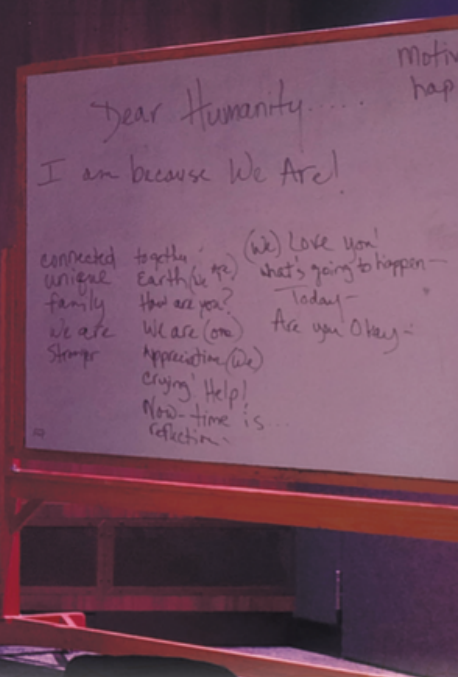 Motiv
hap
Dear Humanity.....
I am because We Are!
connected
unique
family
we are
Stronger
together
Earth (we are)
How are you?
We are (one)
Appreciation (We)
Crying! Help!
Now-time is...
reflection-
(We) Love you!
what's going to happen-
Today-
Are you Okay-